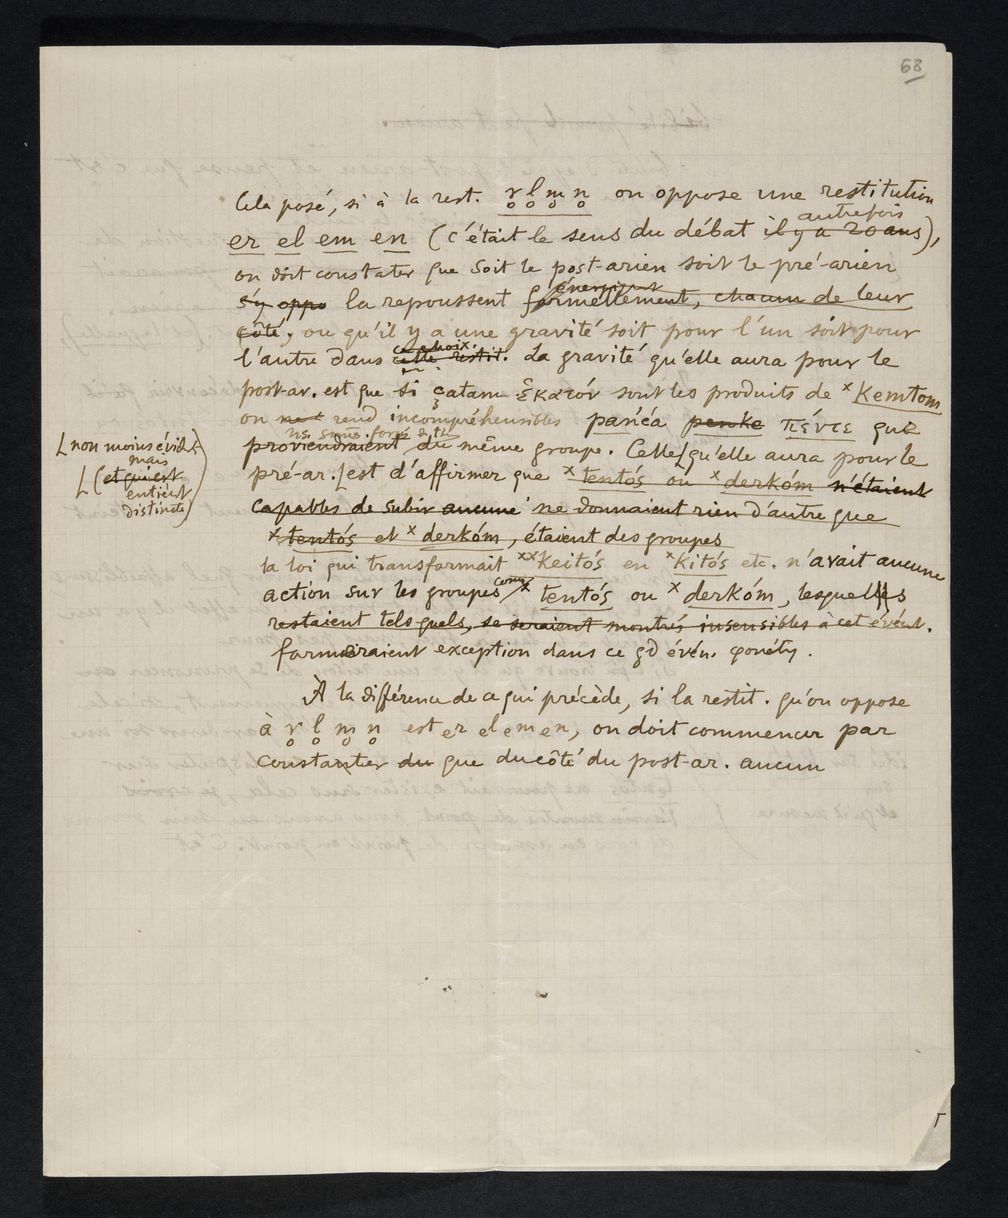 68
Cela posé, si à la rest. r̥ l̥ m̥ n̥ on oppose une restitution
autrefois
er el em en (c'était le sens du débat il y a 20 ans),
on doit constater que soit le post-arien soit le pré-arien
énergiqut
s'y oppo la repoussent formellement, chacun de leur
côté, ou qu'il y a une gravité soit pour l'un soit pour
ce choix.
l'autre dans cette restit. La gravité qu'elle aura pour le
post-ar. est que si çatam ἑκατόν sont les produits de ˣKemtom
on rend incompréhensibles pañća penke πέντε que
ns. som. forcé d. th
proviendraient du même groupe. Celle qu'elle aura pour le
non moins évid.
mais
(et qui est
entièrt
distincte)
pré-ar. est d'affirmer que ˣtentós ou ˣderkóm n'étaient
capables de subir aucune ne donnaient rien d'autre que
ˣtentós et ˣderkóm, étaient des groupes
la loi qui transformait ˣˣKeitós en ˣKitós etc. n'avait aucune
comme
action sur les groupes ˣ tentós ou ˣderkóm, lesquels
restaient tels quels, se seraient montrés insensibles à cet évént.
formeraient exception dans ce gd évén. φonétq.
À la différence de ce qui précède, si la restit. qu'on oppose
à r̥ l̥ m̥ n̥ est er el em en, on doit commencer par
constater du que du côté du post-ar. aucun